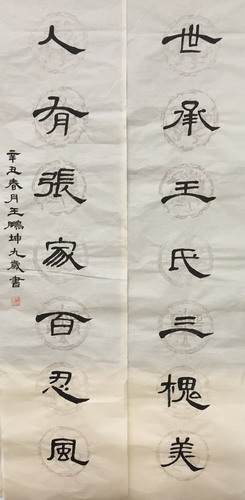 世承王氏三槐美
人有張家百忍風
辛丑春月王鵬坤九歲書